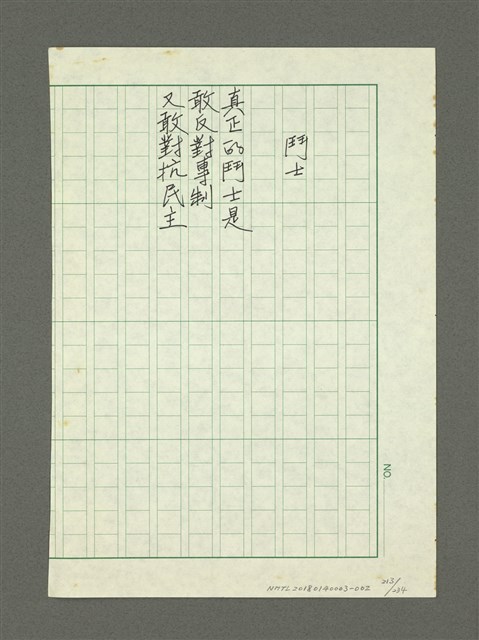 鬥士
真正的鬥士是
敢反對專制
又敢對抗民主
NO.
NMTL20180140003-002
213/234